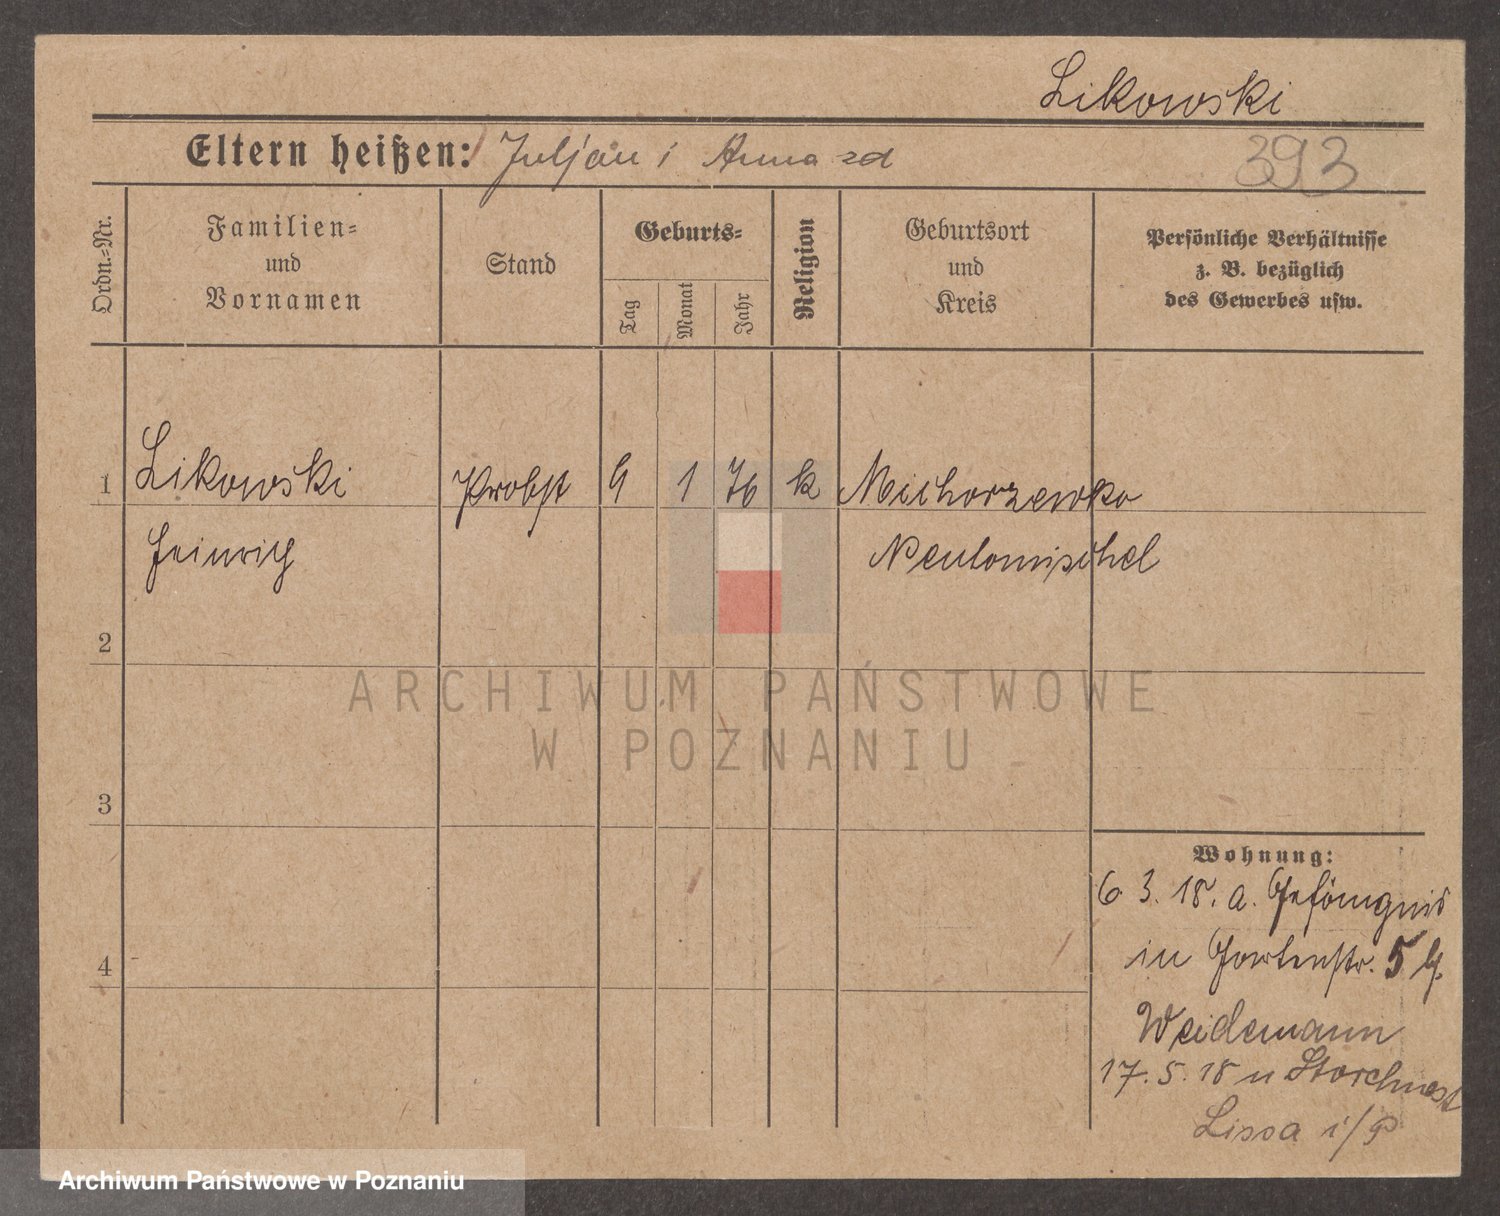 Likowski
Eltern heißen: Juljan i Anna zd
393
Ordn.-Nr.
Familien-
und
Vornamen
Stand
Geburts-
Tag
Monat
Jahr
Religion
Geburtsort
und
Kreis
Persönliche Verhältnisse
z. B. bezüglich
des Gewerbes usw.
1 Likowski Probst 9 1 76 k Michorzewko
Heinrich Neutomischel
2
3
4
Wohnung:
6 3. 18. a. Gefängnis
in Gartenstr. 5 b.
Weidemann
17. 5. 18 n Storchnest
Lissa i/P
ARCHIWUM PAŃSTWOWE
W POZNANIU
Archiwum Państwowe w Poznaniu